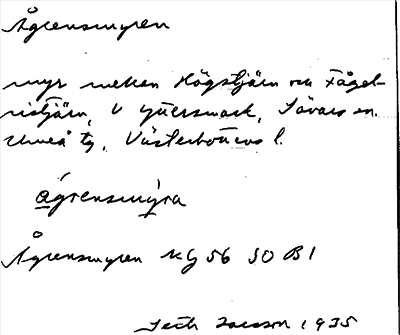 Ågrensmyren
myr mellan Högstjärn och Fågel-
vistjärn, V Yttersmark, Sävars sn.
Umeå tg, Västerbottens l.
ågrensmýra
Ågrensmyren KG 56 50 B 1
1935